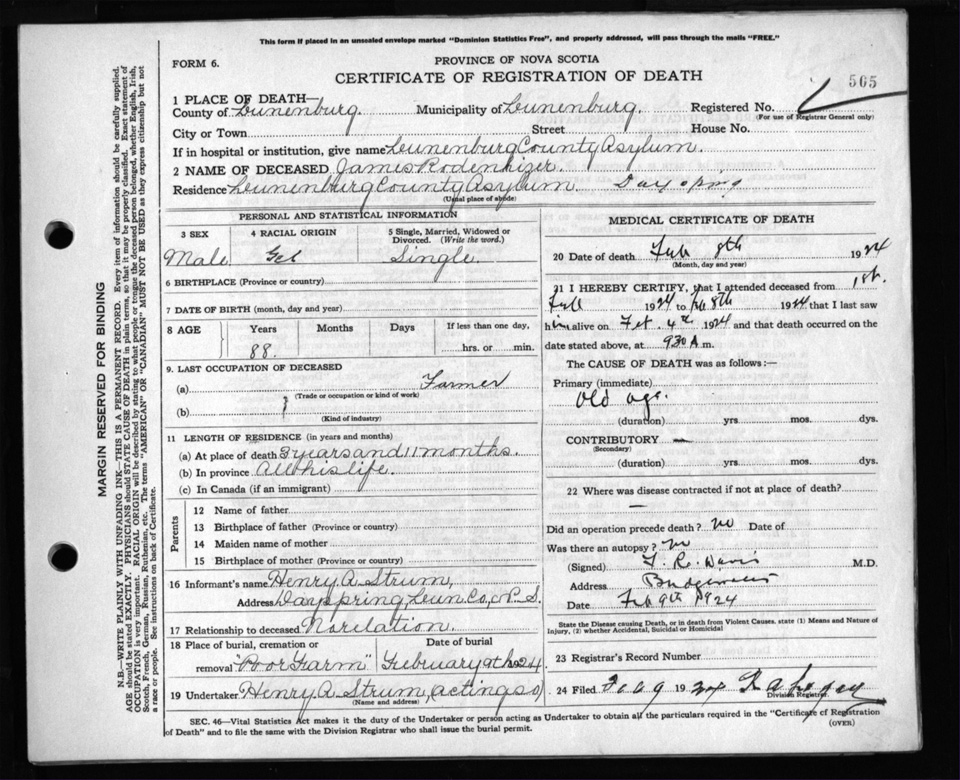 This form if placed in an unsealed envelope marked "Dominion Statistics Free", and properly addressed, will pass through the mails "FREE."
FORM 6.
PROVINCE OF NOVA SCOTIA
CERTIFICATE OF REGISTRATION OF DEATH
505
1 PLACE OF DEATH—
County of Lunenburg. Municipality of Lunenburg. Registered No.
(For use of Registrar General only)
City or Town Street House No.
If in hospital or institution, give name Lunenburg County Asylum.
2 NAME OF DECEASED James Rodenhizer.
Residence Lunenburg County Asylum. Dayspring
(Usual place of abode)
PERSONAL AND STATISTICAL INFORMATION
3 SEX 4 RACIAL ORIGIN 5 Single, Married, Widowed or Divorced. (Write the word.)
Male Single.
6 BIRTHPLACE (Province or country)
7 DATE OF BIRTH (month, day and year)
8 AGE Years Months Days If less than one day,
88. hrs. or min.
9. LAST OCCUPATION OF DECEASED
(a) Farmer
(Trade or occupation or kind of work)
(b)
(Kind of industry)
11 LENGTH OF RESIDENCE (in years and months)
(a) At place of death 3 years and 11 months.
(b) In province All his life.
(c) In Canada (if an immigrant)
Parents
12 Name of father
13 Birthplace of father (Province or country)
14 Maiden name of mother
15 Birthplace of mother (Province or country)
16 Informant's name Henry A. Strum,
Address Dayspring, Lun. Co., N. S.
17 Relationship to deceased No relation.
18 Place of burial, cremation or Date of burial
removal "Poor Farm" February 9th 1924.
19 Undertaker Henry A. Strum, acting so
(Name and address)
MEDICAL CERTIFICATE OF DEATH
20 Date of death Feb 8th 1924
(Month, day and year)
21 I HEREBY CERTIFY, that I attended deceased from 1st.
Feb 1924 to Feb 8th 1924 that I last saw
him alive on Feb. 4th 1924 and that death occurred on the
date stated above, at 930 A m.
The CAUSE OF DEATH was as follows:—
Primary (immediate)
Old age.
(duration) yrs. mos. dys.
CONTRIBUTORY —
(Secondary)
(duration) yrs. mos. dys.
22 Where was disease contracted if not at place of death?
—
Did an operation precede death? no Date of
Was there an autopsy? no
(Signed) F. R. Davis M.D.
Address Bridgewater
Date Feb 9th 1924
State the Disease causing Death, or in death from Violent Causes, state (1) Means and Nature of
Injury, (2) whether Accidental, Suicidal or Homicidal
23 Registrar's Record Number
24 Filed Feb 9 1924
Division Registrar.
SEC. 46—Vital Statistics Act makes it the duty of the Undertaker or person acting as Undertaker to obtain all the particulars required in the "Certificate of Registration
of Death" and to file the same with the Division Registrar who shall issue the burial permit.
(OVER)
MARGIN RESERVED FOR BINDING
N.B.—WRITE PLAINLY WITH UNFADING INK—THIS IS A PERMANENT RECORD. Every item of information should be carefully supplied.
AGE should be stated EXACTLY. PHYSICIANS should STATE CAUSE OF DEATH in plain terms, so that it may be properly classified. Exact statement of
OCCUPATION is very important. RACIAL ORIGIN will be described by stating to what people or tongue the deceased person belonged, whether English, Irish,
Scotch, French, German, Russian, Ruthenian, etc. The terms "AMERICAN" OR "CANADIAN" MUST NOT BE USED as they express citizenship but not
a race or people. See instructions on back of Certificate.